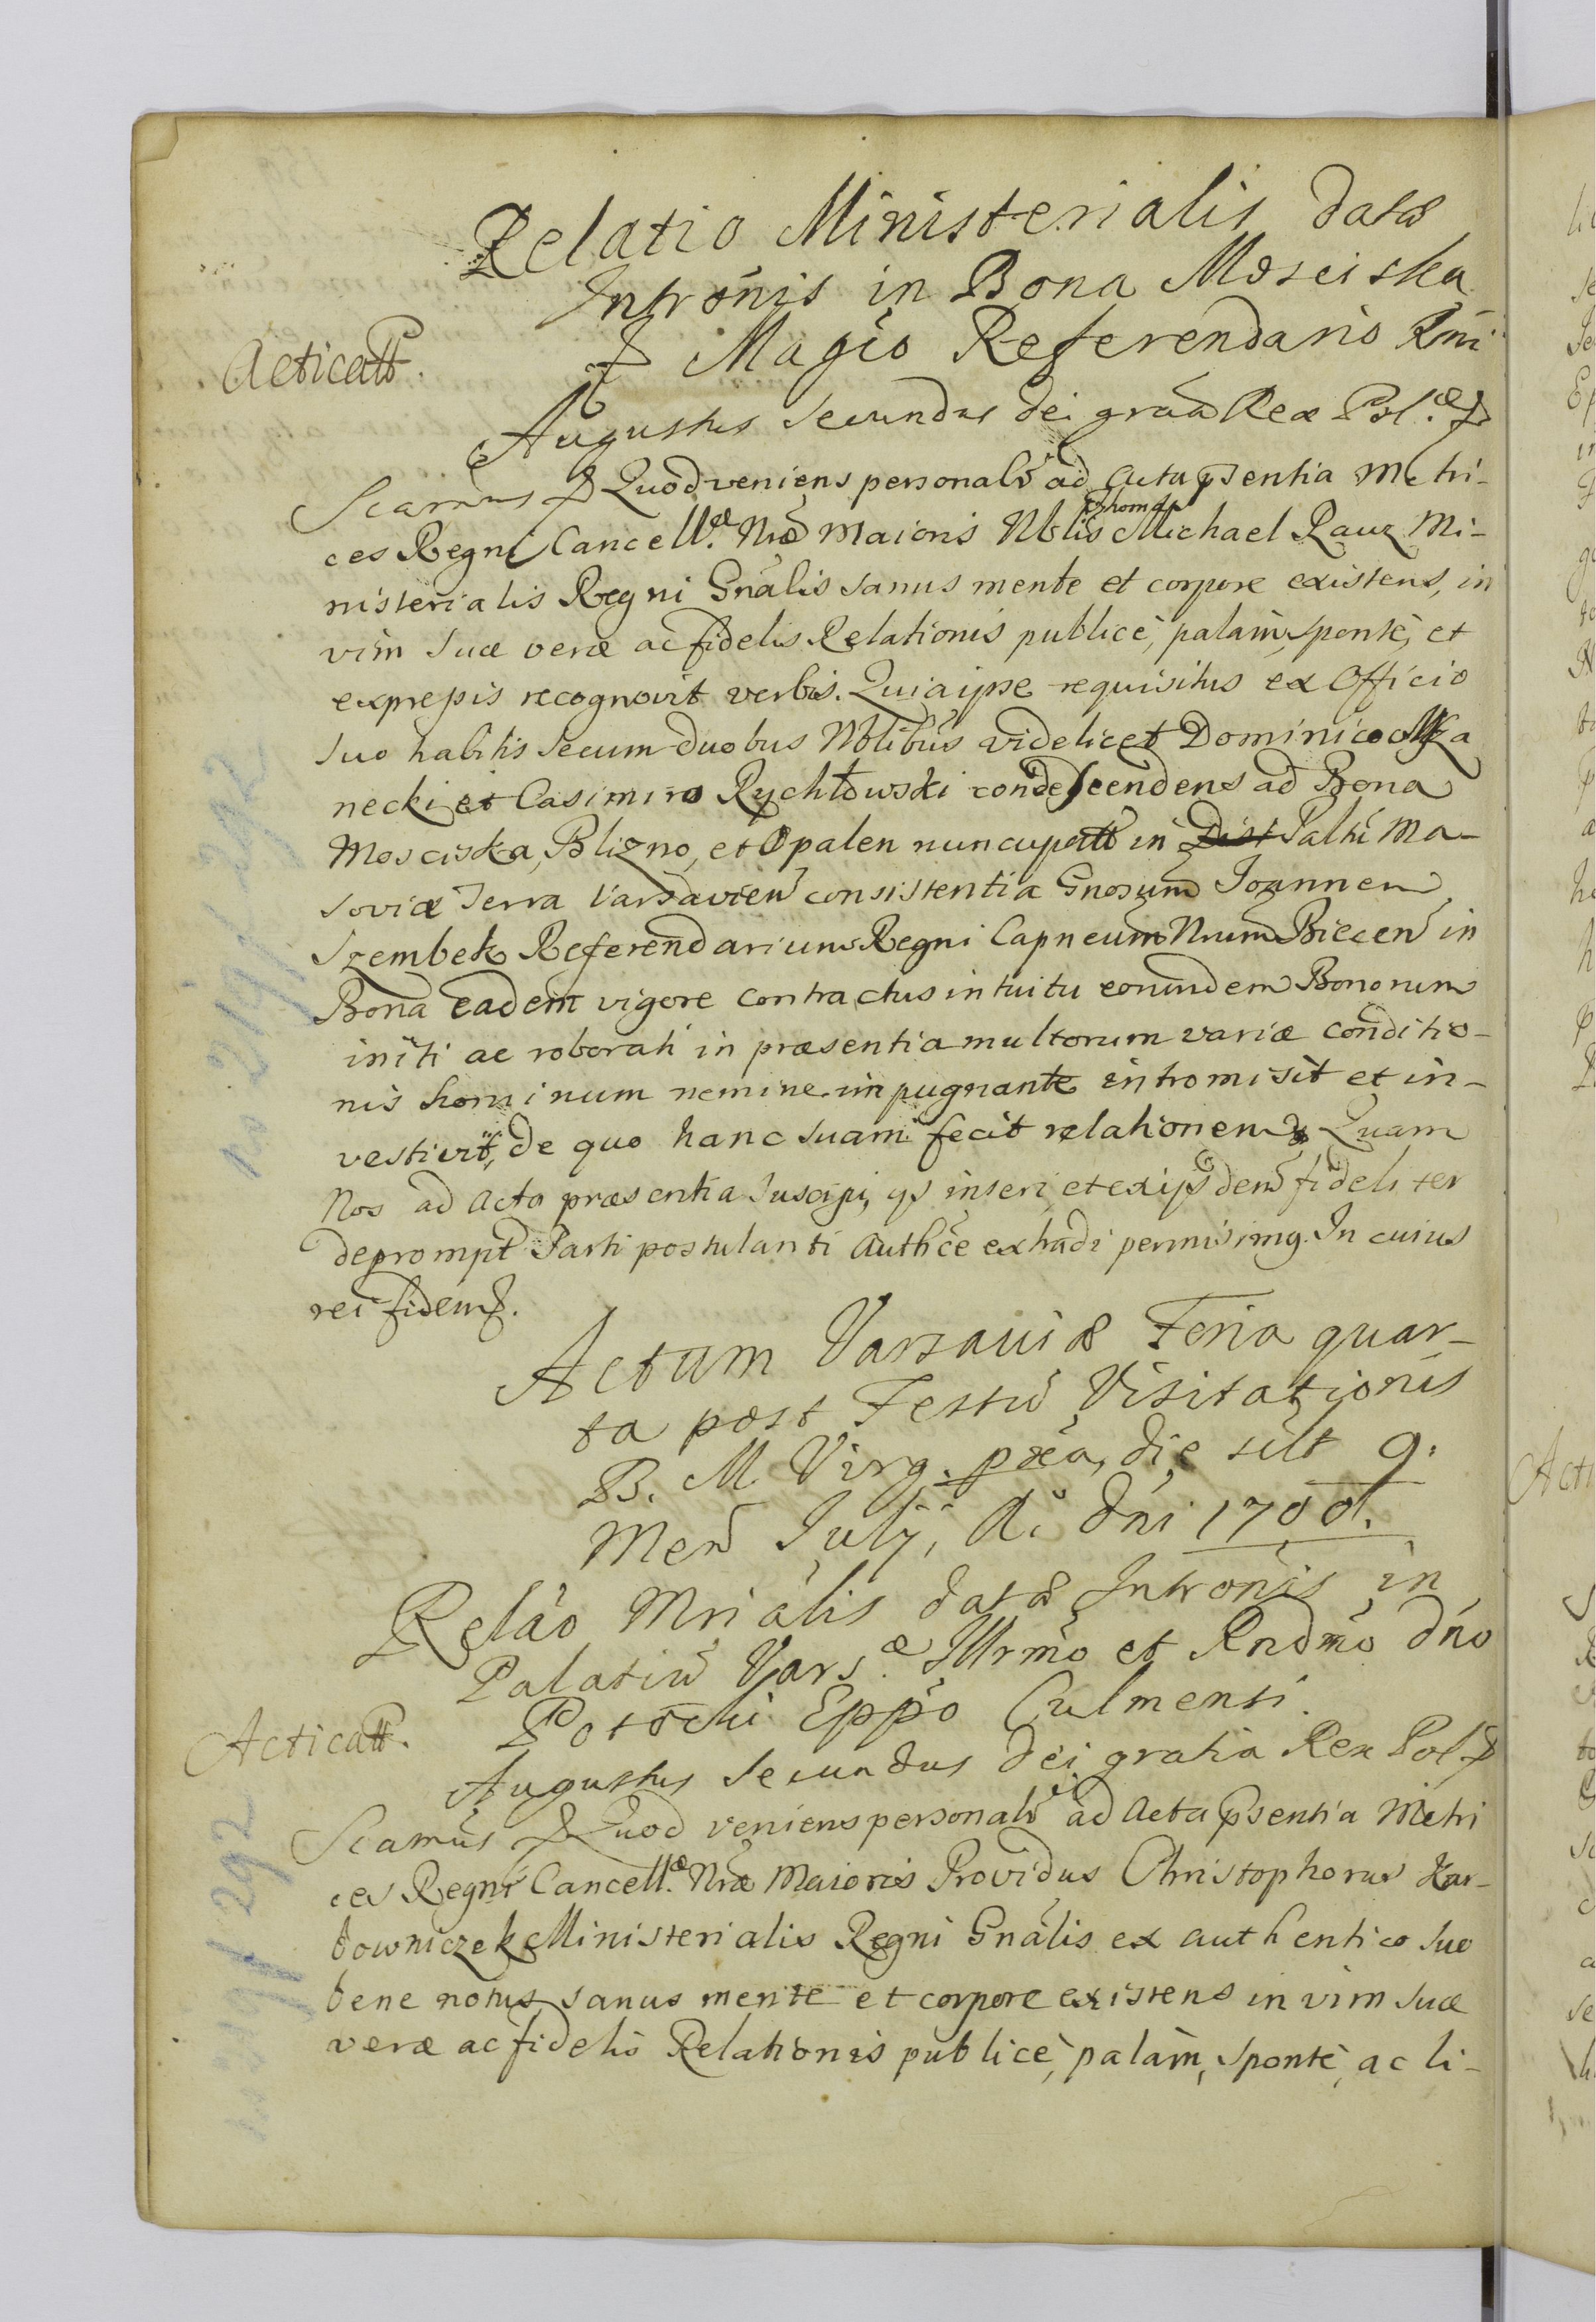 Relatio Ministerialis datæ
Intrōnis in Bona Mosciska
Magco Referendario Rni
Acticatt.
Augustus Secundus Dei grãa Rex Pol.æ
Scamus Quod veniens personalr ad Acta psentia Metri-
ces Regni Cancell.æ Nræ Maioris Nblis Thomas Michael Rauz Mi-
nisterialis Regni Gnãlis sanus mente et corpore existens, in
vim suæ veræ ac fidelis Relationis publicè, palàm, sponte, et
expressis recognovit verbis. Quia ipse requisitus ex Officio
suo habitis secum duobus Nblibus videlicet Dominico
necki et Casimiro Rychłowski condescendens ad Bona
Mosciska, Blizno, et Opalen nuncupatt in Dist Palttu Ma-
soviæ Terra Varsavien consistentia Gnosum Joannem
Szembek Referendarium Regni Capneum Nrum Biecen in
Bona eadem vigore contractus intuitu eorundem Bonorum
initi ac roborati in præsentia multorum variæ conditio-
nis hominum nemine impugnante intromisit et in-
vestivit, de quo hanc suam fecit relationem Quam
Nos ad Acta præsentia suscipi, qs inseri, et ex ijsdem fideliter
deprompt Parti postulanti Authce extradi permisimg. In cuius
rei fidem.
Actum Varsaviæ Feria quar-
ta post Festũ Visitationis
B. M. Virg. pxa, die silt 9.
Men Julij, Aõ Dni 1700.
Relão Mriãlis datæ Intronis in
Palatiũ Vars.æ Illrmo et Rndmo Dno
Potocki Eppo Culmensi.
Acticatt.
Augustus Secundus Dei gratia Rex Pol
Scamus Quod veniens personalr ad Acta psentia Metri
ces Regni Cancell.æ Nræ Maioris Providus Christophorus Kar-
towniczek Ministerialis Regni Gnãlis ex authentico suo
bene notus, sanus mente et corpore existens in vim suæ
veræ ac fidelis Relationis publicè, palàm, sponte, ac li-